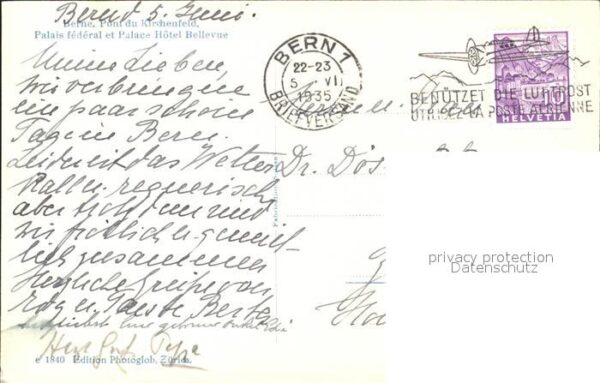 Bern d 5. Juni.
Berne. Pont du Kirchenfeld,
Palais fédéral et Palace Hôtel Bellevue
Meine Lieben,
wir verbringen
ein paar schöne
Tage in Bern.
Leider ist das Wetter
kalt u. regnerisch
aber trotzdem sind
wir fröhlich u. gemüt
lich zusammen
Herzliche Grüsse von
u. Tante Berta
Herzl. Gruß
e 1840 Edition Photoglob, Zürich.
BERN 1
22-23
5 VI
1935
BRIEFVERSAND
BENÜTZET DIE LUFTPOST
UTILISEZ LA POSTE AERIENNE
10
HELVETIA
Dr.
privacy protection
Datenschutz